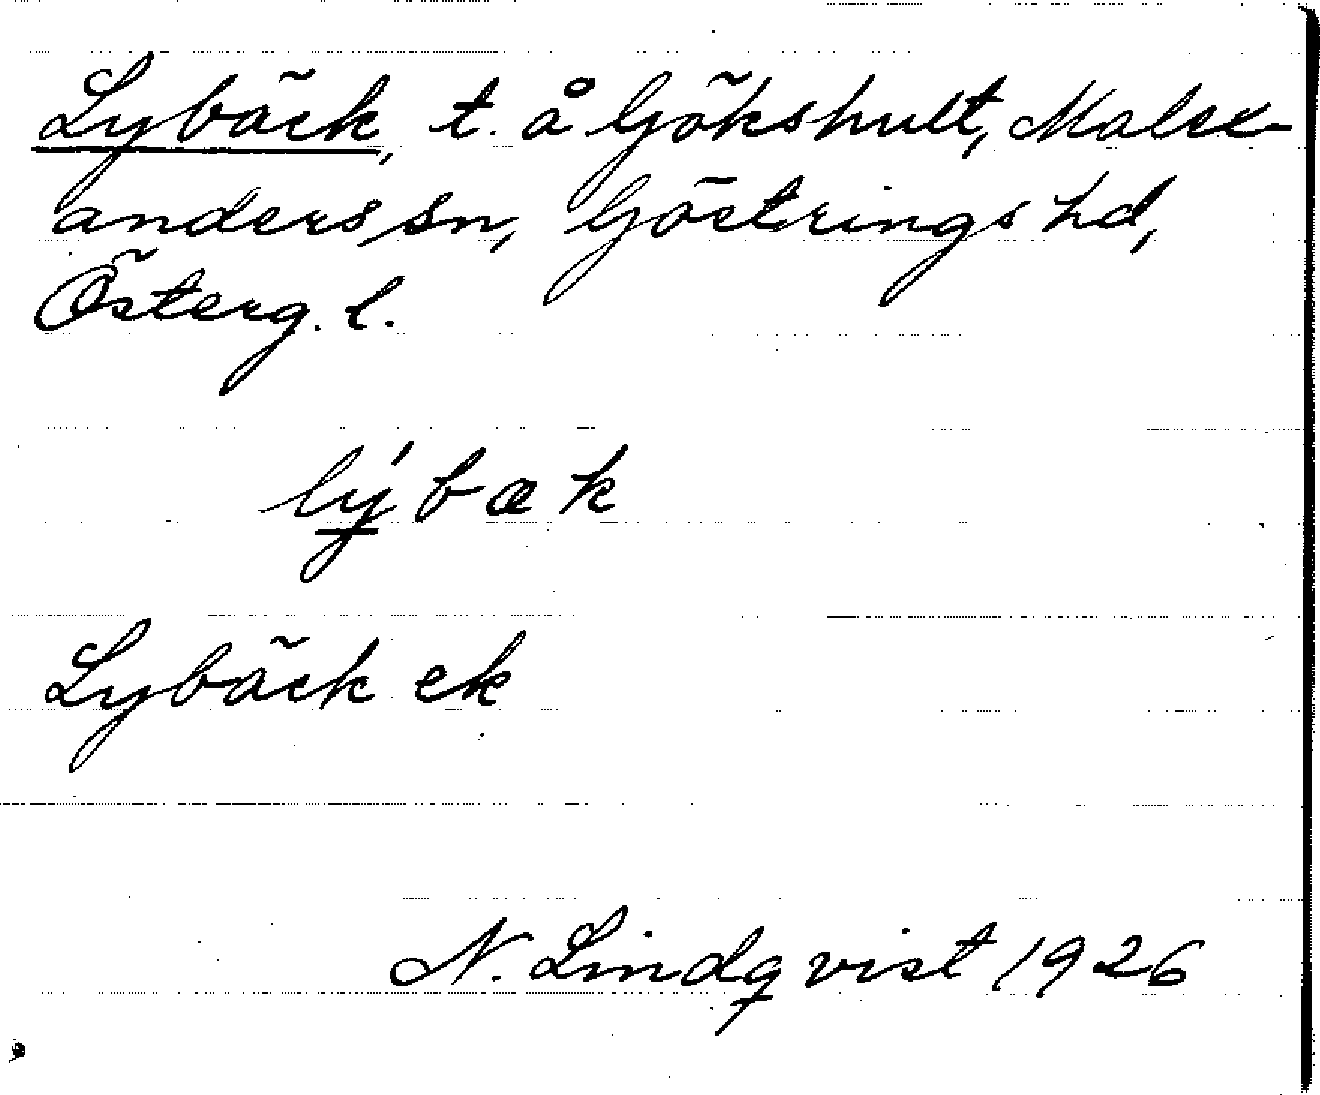 Lybäck, t. å Gökshult, Malex-
anders sn, Göstrings hd,
Österg. l.
lý̲bæk
Lybäck ek
N. Lindqvist 1926